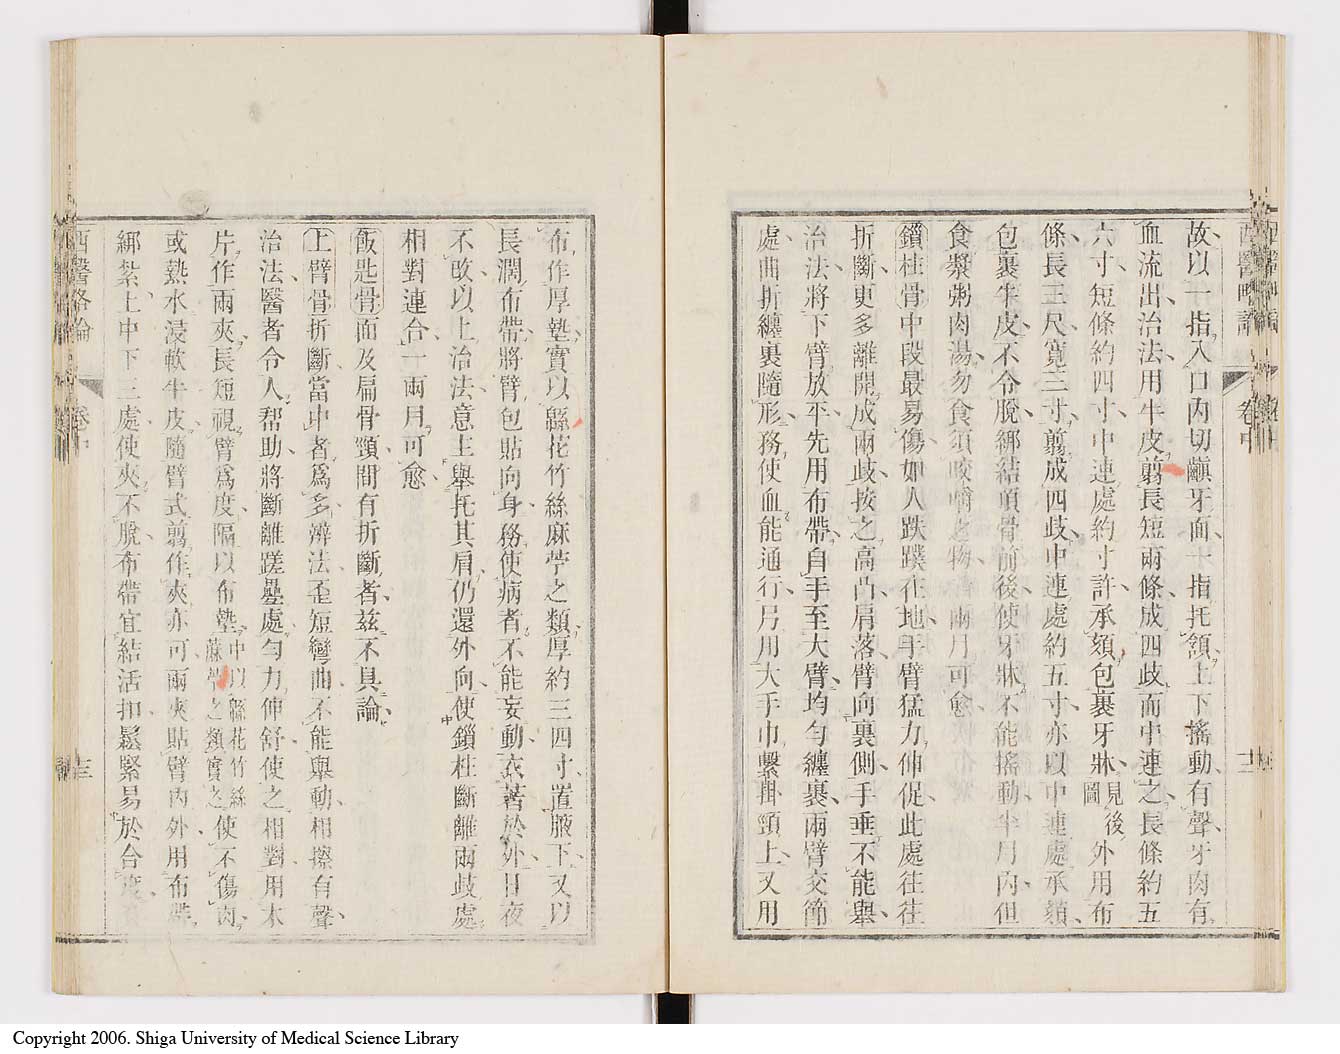 故以一指入口內切齻牙面一指托頷上下搖動有聲牙肉有
血流出治法用牛皮翦長短兩條成四歧而中連之長條約五
六寸短條約四寸中連處約寸許承頦包裹牙牀見後圖外用布
條長三尺寬三寸翦成四歧中連處約五寸亦以中連處承頦
包裹牛皮不令脫綁結頂骨前後使牙牀不能搖動半月內但
食漿粥肉湯勿食須咬嚼之物者兩月可愈
鎖柱骨中段最易傷如人跌蹼在地手臂猛力伸促此處往往
折斷更多離開成兩歧按之高凸肩落臂向裏側手垂不能舉
治法將下臂放平先用布帶自手至大臂均勻纏裹兩臂交節
處曲折纏裹隨形務使血能通行另用大手巾繫掛頸上又用
西醫略論 卷中 十二
布作厚墊實以緜花竹絲麻苧之類厚約三四寸置腋下又以
長濶布帶將臂包貼向身務使病者不能妄動衣著於外日夜
不改以上治法意主舉托其肩仍還外向使鎖柱斷離兩歧處
相對連合一兩月可愈
飯匙骨面及扁骨頸間有折斷者茲不具論
上臂骨折斷當中者爲多辨法歪短彎曲不能舉動相擦有聲
治法醫者令人帮助將斷離蹉疊處勻力伸舒使之相對用木
片作兩夾長短視臂爲度隔以布墊中以緜花竹絲蔴苧之類實之使不傷肉
或熱水浸軟牛皮隨臂式翦作夾亦可兩夾貼臂內外用布帶
綁紥上中下三處使夾不脫布帶宜結活扣鬆緊易於合度
西醫略論 卷中 十三
Copyright 2006. Shiga University of Medical Science Library